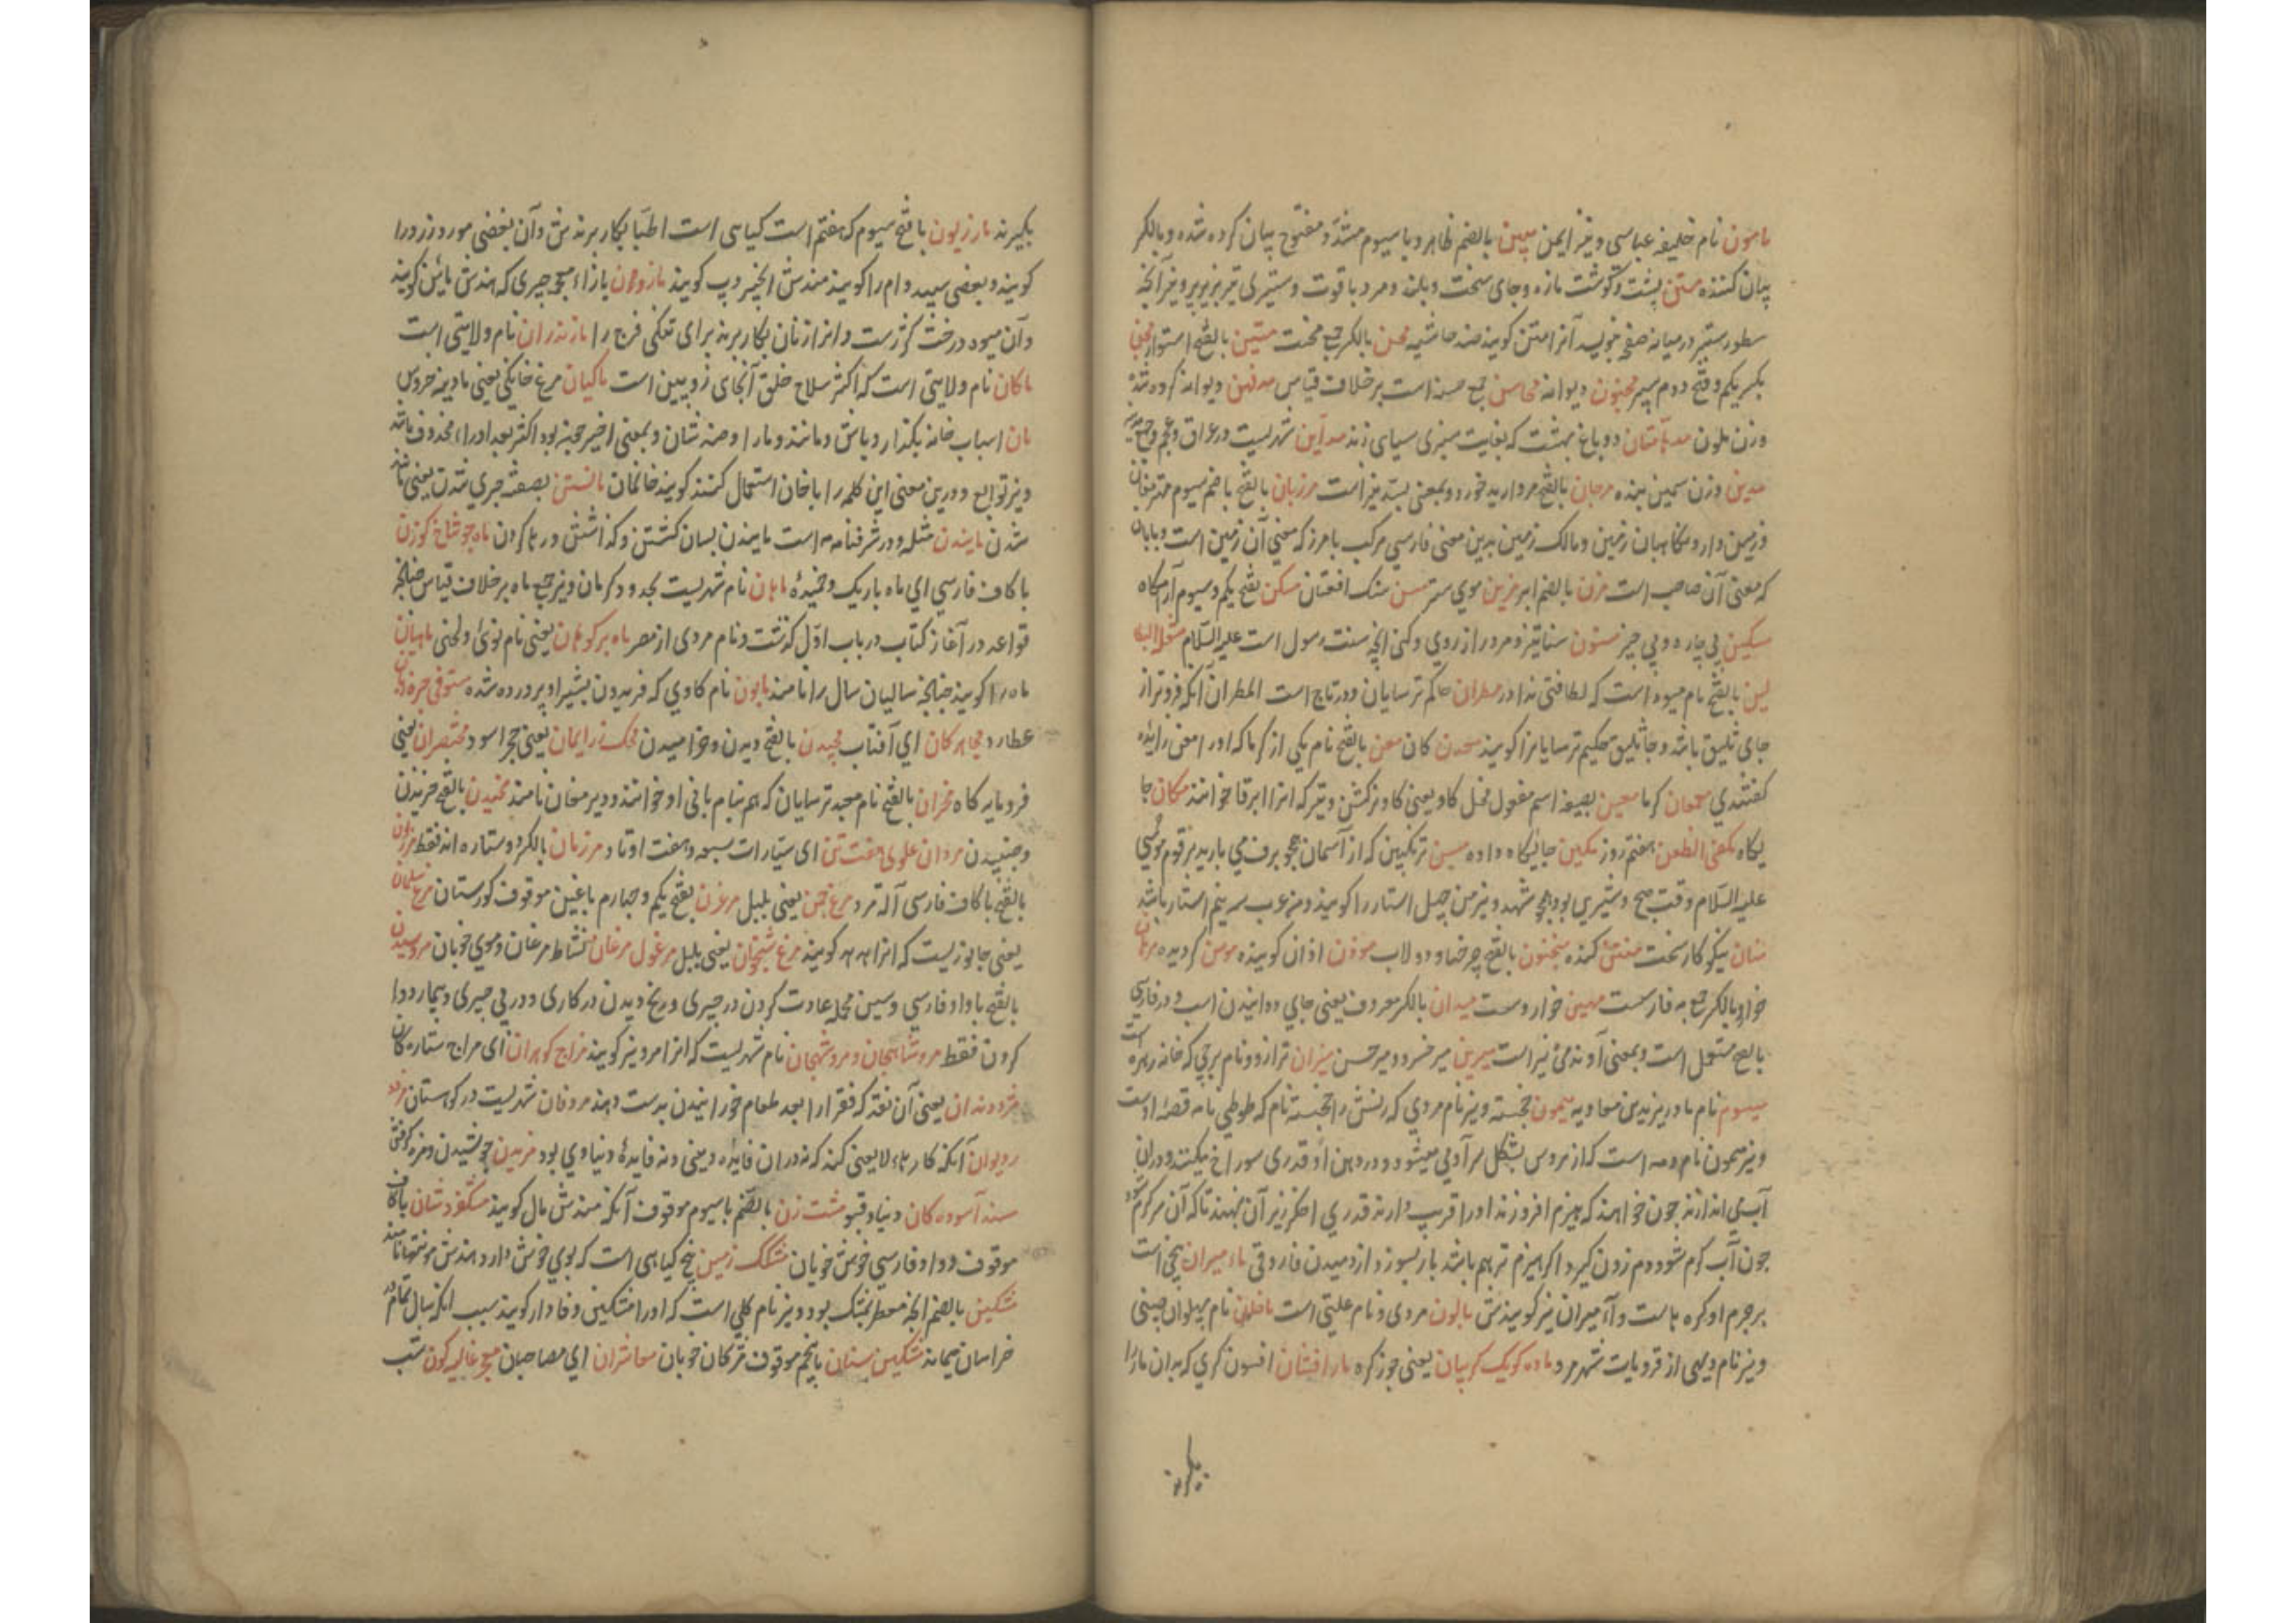 مامون نام خلیفه عباسی و نیز ایمن مبین بالضم ظاهر و با سیوم مشدد و مفتوح بیان کرده شده و بالکسر
بیان کننده متن پشت و گوشت مازه و جای سخت و بلند و مرد با قوت و ستبری تیر و نیز آنچه
سطور ستبر در میانه صفحه نویسد آنرا متن گویند ضد حاشیه محن بالکسر جمع محنت متین بالفتح استوار مجن
بکسر یکم و فتح دوم سپر مجنون دیوانه محاسن جمع حسنه است بر خلاف قیاس
وزن ملون مدهامتان دو باغ بهشت که بغایت سبزی سیاهی زند مداین شهریست در عراق و عجم و جمع
مدین وزن سمین بنده مرجان بالفتح مروارید خورد و بمعنی بسد نیز است مرزبان بالفتح با ضم سیوم مهتر مغان
و زمین دار و نگاهبان زمین و مالک زمین بدین معنی فارسی مرکب با مرز که معنی آن زمین است و با بان
که معنی آن صاحب است مزن بالضم ابر مزین موی ستر مسن سنگ افسان مسکن بفتح یکم و سیوم آرامگاه
مسکین بی چاره و بی چیز مسنون سنان تیز و مرد دراز روی و کنی آنچه سنت رسول است علیه السلام
بالفتح نام میوه است که لطافتی ندارد مطران حاکم ترسایان و در تاج است المطران آنکه فروتر از
جای ثلیق باشد و جاثلیق حکیم ترسایانرا گویند معدن کان معن بالفتح نام یکی از کرما که او را معن زایده
گفتندی معین بصیغه اسم مفعول فحل گاو یعنی گاو نر کشن و تیر که آنرا ابرقا خوانند مکان جا
یگاه هفتم روز مکین جایگاه داده من ترنگبین که از آسمان همچو برف می بارید بر قوم موسی
علیه السلام وقت صبح و شیرین بود همچو شهد و نیز من چهل استار را گویند و من عرب سه نیم استار باشد
منان نیکوکار سخت منت کننده منجنون بالفتح چرخها و دولاب موذن اذان گوینده مومن گرویده مهان
خوار و بالکسر جمع به فارسیست مهین خوار و سست میدان بالکسر معروف یعنی جای دوانیدن اسب و در فارسی
بالفتح مستعمل است و بمعنی آوند می نیز است میرین میر خسرو و میر حسن میزان ترازو و نام برجی که خانه زهره است
میسون نام مادر یزید بن معاویه میمون خجسته و نیز نام مردی که زنش را خجسته نام که طوطی نامه قصه اوست
و نیز میمون نام دمه است که از مس بشکل سر آدمی میشود و در دهن او قدری سوراخ میکنند و در ان
آب می اندازند چون خواهند که هیزم افروزند او را قریب دارند قدری اخگر زیر آن نهند تا که آن سر گرم شود
چون آب گرم شود دم زدن گیرد اگر هیزم تر هم باشد بار بسوزد از دمیدن فاروقی ماء میران بیخی است
بر جرم او گره هاست و آءمیران نیز گویندش مالون مردی و نام علیتی است نام پهلوان چینی
و نیز نام دیهی از قرویات شهر مرو ماده گویک گریبان یعنی جوز گره مارافسان افسون گری که بدان مار را
بگیرند
بگیرند مازریون با فتح سیوم که هفتم است گیاهی است اطبا بکار برندش و آن بعضی مورد زرد را
گویند و بعضی سپید وام را گویند هندش انجیر دپ گویند مازوین با زاء همچو چیزی که هندش ماین گویند
و آن میوه درخت گزرست و آنرا زنان بکار برند برای تنگی فرج را مازندران نام ولایتی است
ماکان نام ولایتی است که اکثر سلاح خلق آنجای زوبین است ماکیان مرغ خانگی یعنی مادینه خروس
مان اسباب خانه بگذار و باش و مانند و ما را و ضد شان و بمعنی اخیر جز به بود اکثر بعد او را محذوف باشد
و نیز توابع و درین معنی این کلمه را با خان استعمال کنند گویند خانمان مانستن بصفت چیزی شدن یعنی مانند
شدن مانیدن مثله و در شرفنامه است مانیدن بسان گشتن و گذاشتن و رها کردن ماه چو شاخ گوزن
با کاف فارسی ای ماه باریک و خمیده ماهان نام شهریست بحدود کرمان و نیز جمع ماه بر خلاف قیاس چنانچه
قواعد در آغاز کتاب در باب اول گذشت و نام مردی از مصر ماه بر کوهان یعنی نام نوئی و لحنی ماهیان
ماه را گویند چنانچه سالیان سال را نامند مایون نام گاوی که فریدون بشیر او پرورده شده مستوفی
عطارد ای آفتاب مچیدن بالفتح دیدن و خرامیدن محک زر ایمان یعنی حجر اسود مختصران یعنی
فرومایه گاه مخران بالفتح نام معبد ترسایان که هم بنام بانی او خوانند و دیر مخان نامند مخیدن بالفتح خزیدن
و جنبیدن مردان علوی هفت تن ای سیارات سبعه و هفت اوتاد مرزبان بالکسر دو ستاره اند فقط مرزن
بالفتح با کاف فارسی آله مرد مرغ چمن یعنی بلبل مرغزن بفتح یکم و چهارم با غین موقوف گورستان مرغ سلیمان
یعنی جانوریست که آنرا هدهد گویند مرغ شبخوان یعنی بلبل مرغول مرغان نشاط مرغان و موی خوبان مروسیدن
بالفتح با واو فارسی و سین محله عادت کردن در چیزی و رنج دیدن در کاری و در پی چیزی و بیمار دوا
کردن فقط مروشاهجان و مروشهجان نام شهریست که آنرا مرو نیز گویند مزاج گوهران ای مزاج ستارگان
مزد دندان یعنی آن نقد که فقرا را بعد طعام خورانیدن بدست دهند مزدقان شهریست در کوهستان مزدور
دیوان آنکه کارهای لایعنی کند که نه در ان فایده دینی و نه فایده دنیاوی بود مزیدن چوشیدن و مزه گرفتن
مسند آسوده کان دنیا و قبر مشت زن بالضم با سیوم موقوف آنکه هندش مال گویند مشکفروشان باکاف
موقوف و واو فارسی خوش خویان مشک زمین بیخ گیاهی است که بوی خوش دارد هندش موتها نامند
مشکین بالضم آنچه معطر بمشک بود و نیز نام گلی است که او را مشکین وفادار گویند سبب آنکه سال تمام در
خراسان میماند مشکین سنان با پنجم موقوف ترکان خوبان معاشران ای مصاحبان شب